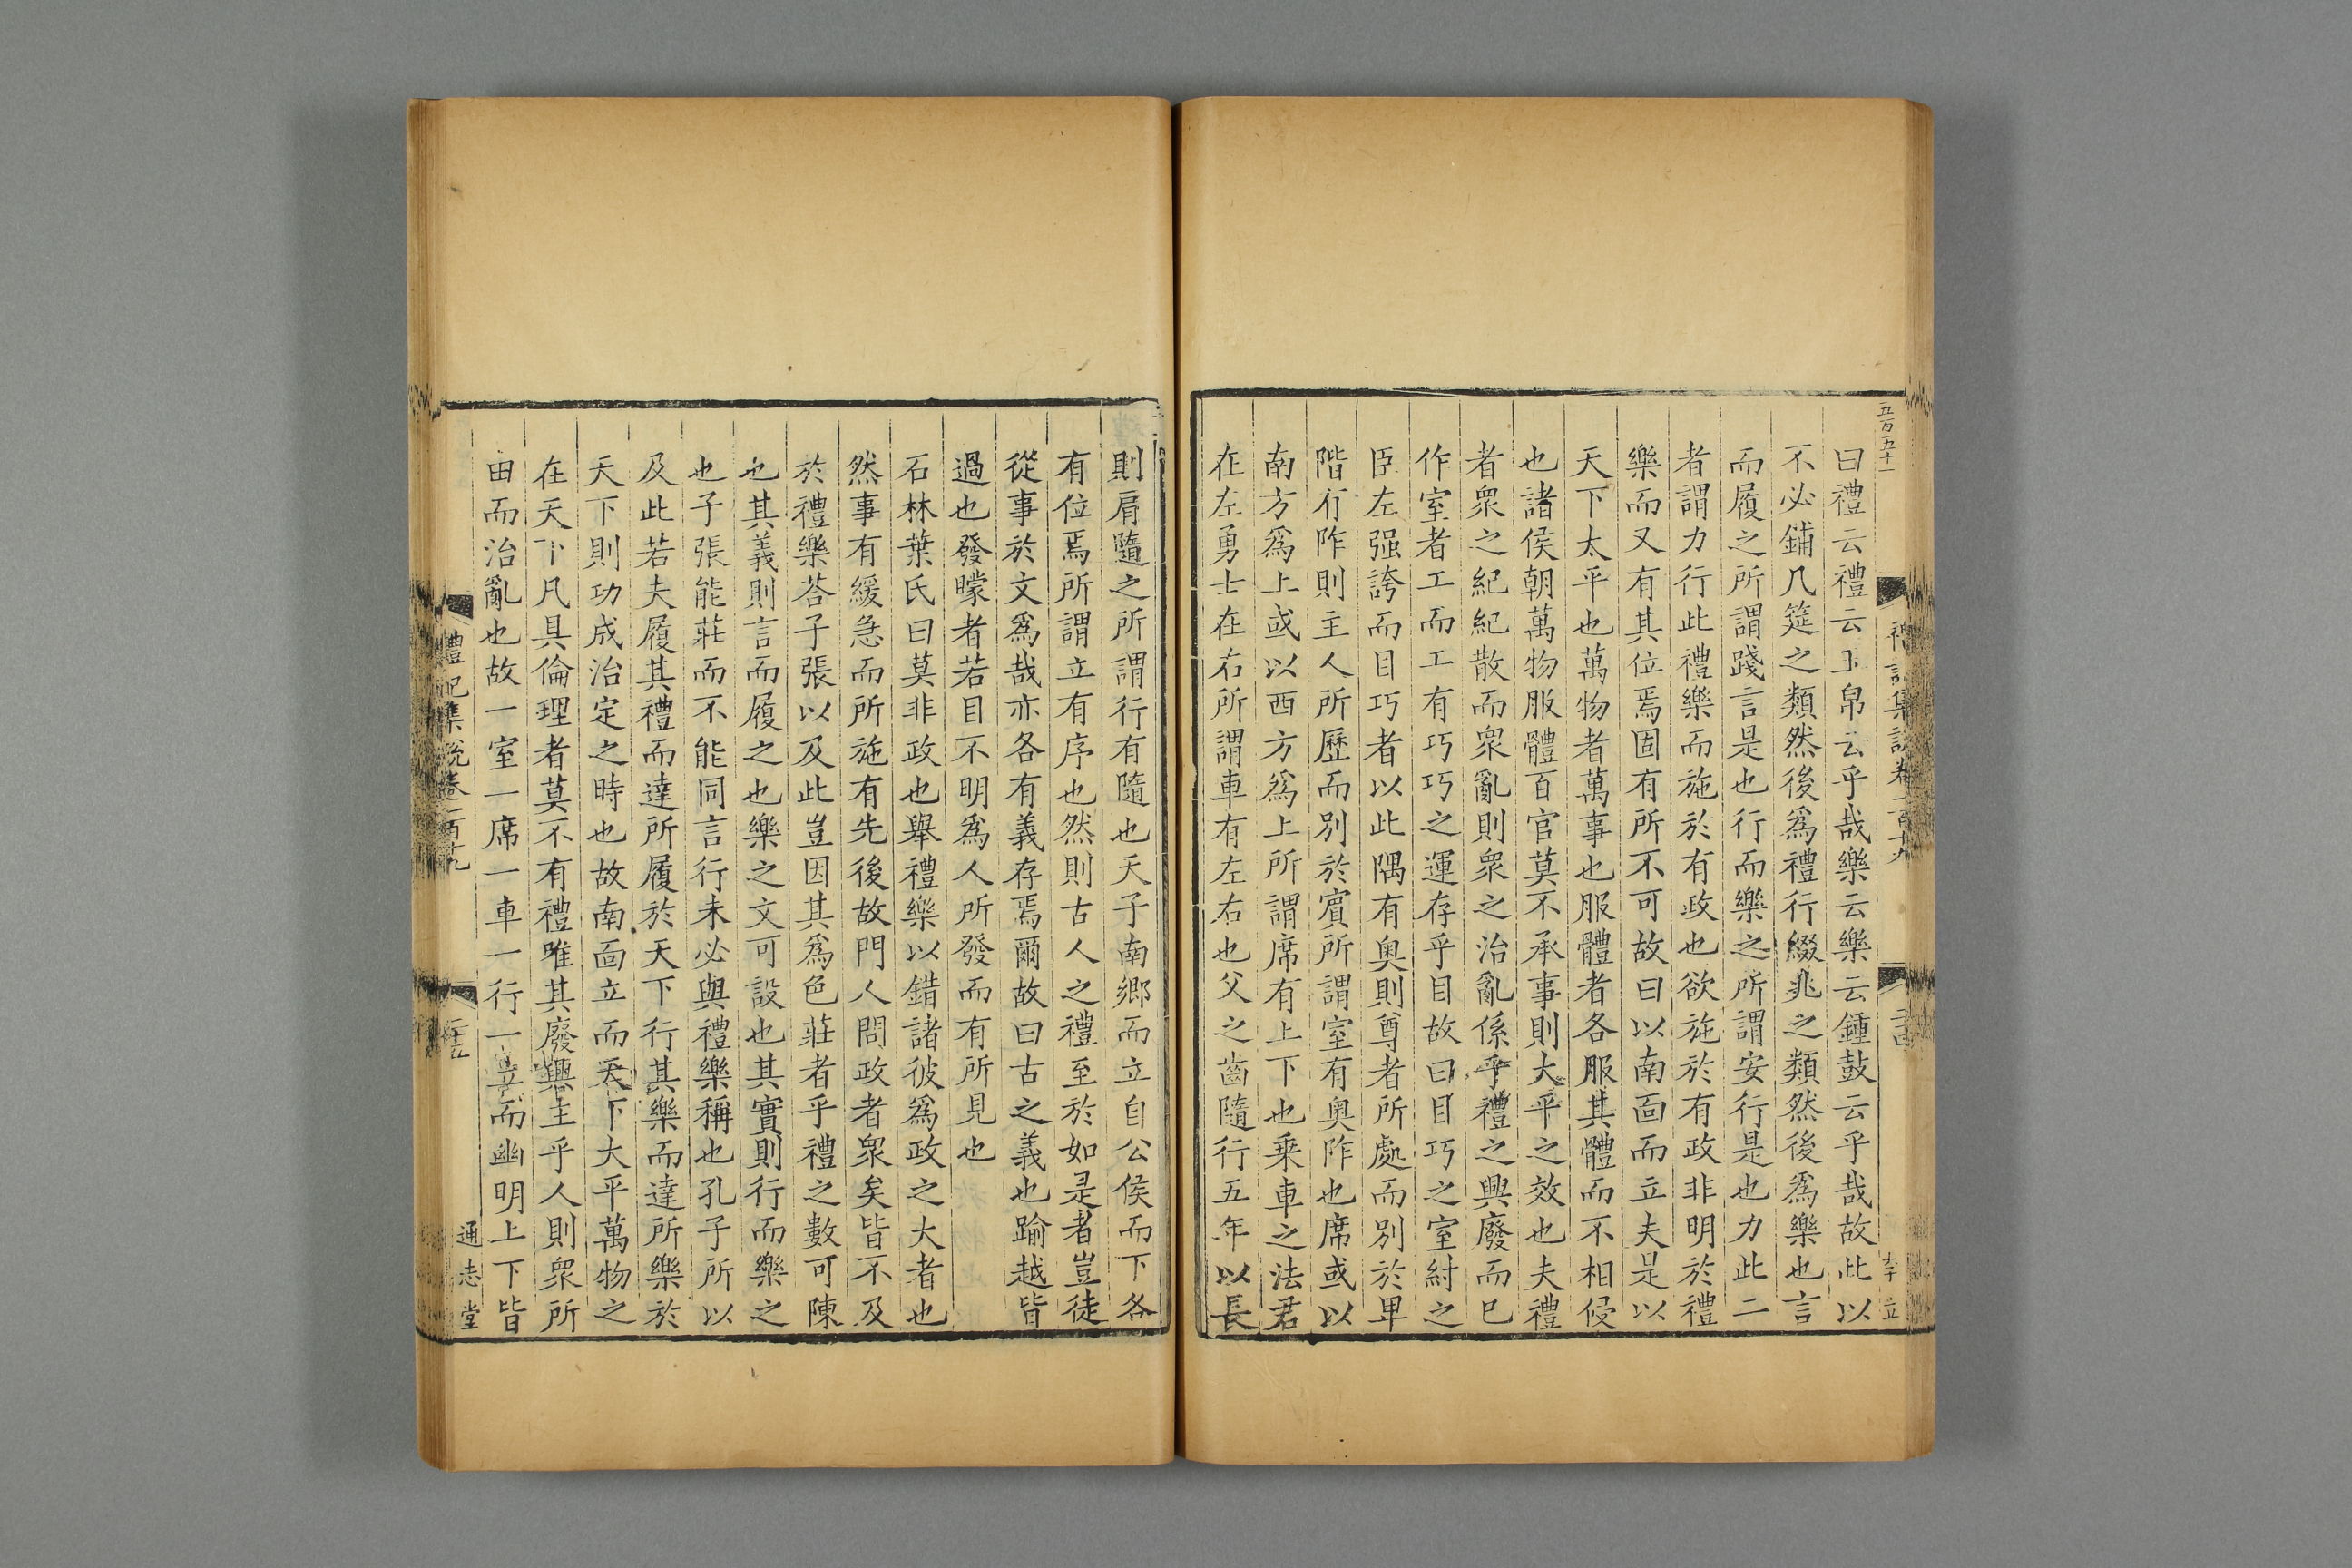 五百五十一
禮記集說卷一百十九
二十四
曰禮云禮云玉帛云乎哉樂云樂云鍾鼓云乎哉故此以
不必鋪几筵之類然後爲禮行綴兆之類然後爲樂也言
而履之所謂踐言是也行而樂之所謂安行是也力此二
者謂力行此禮樂而施於有政也欲施於有政非明於禮
樂而又有其位焉固有所不可故曰以南面而立夫是以
天下太平也萬物者萬事也服體者各服其體而不相侵
也諸侯朝萬物服體百官莫不承事則大平之效也夫禮
者衆之紀紀散而衆亂則衆之治亂係乎禮之興廢而已
作室者工而工有巧巧之運存乎目故曰目巧之室紂之
臣左强誇而目巧者以此隅有奥則尊者所處而別於卑
階有阼則主人所歷而別於賓所謂室有奥阼也席或以
南方爲上或以西方爲上所謂席有上下也乘車之法君
在左勇士在右所謂車有左右也父之齒隨行五年以長
則肩隨之所謂行有隨也天子南鄉而立自公侯而下各
有位焉所謂立有序也然則古人之禮至於如是者豈徒
從事於文爲哉亦各有義存焉爾故曰古之義也踰越皆
過也發矇者若目不明爲人所發而有所見也
石林葉氏曰莫非政也舉禮樂以錯諸彼爲政之大者也
然事有緩急而所施有先後故門人問政者衆矣皆不及
於禮樂荅子張以及此豈因其爲色莊者乎禮之數可陳
也其義則言而履之也樂之文可設也其實則行而樂之
也子張能莊而不能同言行未必與禮樂稱也孔子所以
及此若夫履其禮而達所履於天下行其樂而達所樂於
天下則功成治定之時也故南面立而天下大平萬物之
在天下凡具倫理者莫不有禮唯其廢興主乎人則衆所
由而治亂也故一室一席一車一行一立而幽明上下皆
禮記集說卷一百十九
二十五
通志堂